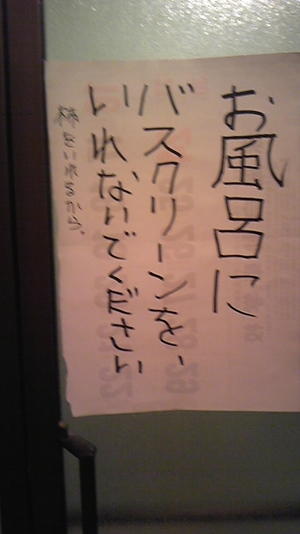 お風呂に
バスクリーンを、
いれないでください
をいれるから。